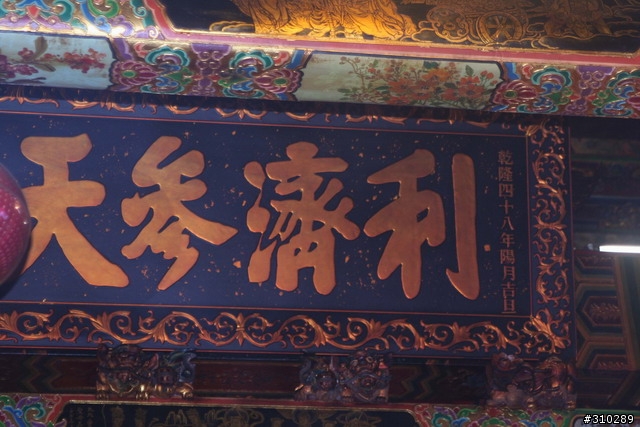 乾隆四十八年陽月吉旦
利濟參天
#310289